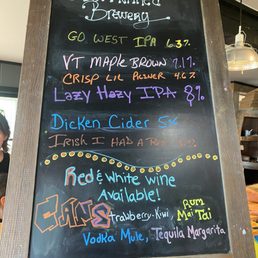 Brewery
GO WEST IPA 6.3%
VT MAPLE BROWN 7.1%
CRISP LIL PILSNER 4.6%
LAZY HAZY IPA 8%
DICKEN CIDER 5%
IRISH I HAD A
Red & White wine
Available!
CANS Strawberry-Kiwi, Rum Mai Tai
Vodka Mule, Tequila Margarita